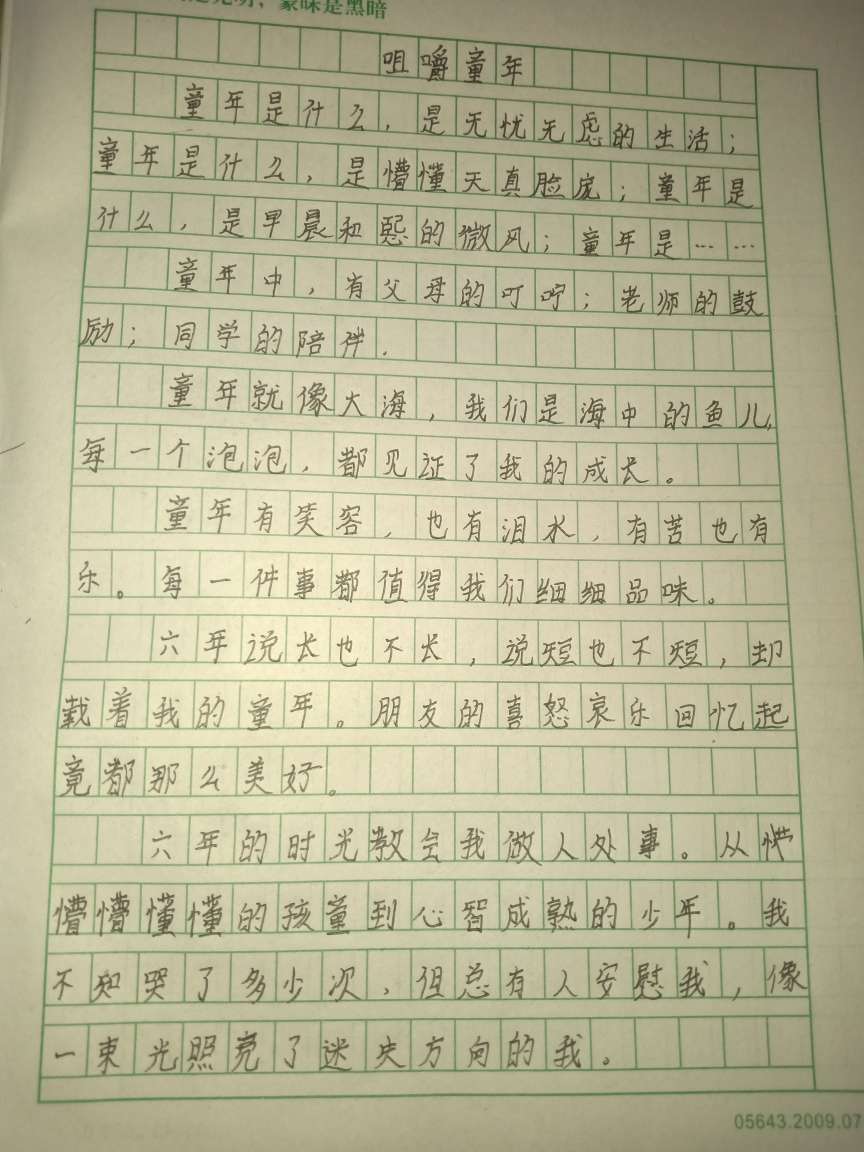 光明，蒙昧是黑暗
咀嚼童年
童年是什么，是无忧无虑的生活；
童年是什么，是懵懂天真脸庞；童年是
什么，是早晨和熙的微风；童年是……
童年中，有父母的叮咛；老师的鼓
励；同学的陪伴.
童年就像大海，我们是海中的鱼儿，
每一个泡泡，都见证了我的成长。
童年有笑容，也有泪水，有苦也有
乐。每一件事都值得我们细细品味。
六年说长也不长，说短也不短，却
载着我的童年。朋友的喜怒哀乐回忆起
竟都那么美好。
六年的时光教会我做人处事。从
懵懵懂懂的孩童到心智成熟的少年。我
不知哭了多少次，但总有人安慰我，像
一束光照亮了迷失方向的我。
05643.2009.07